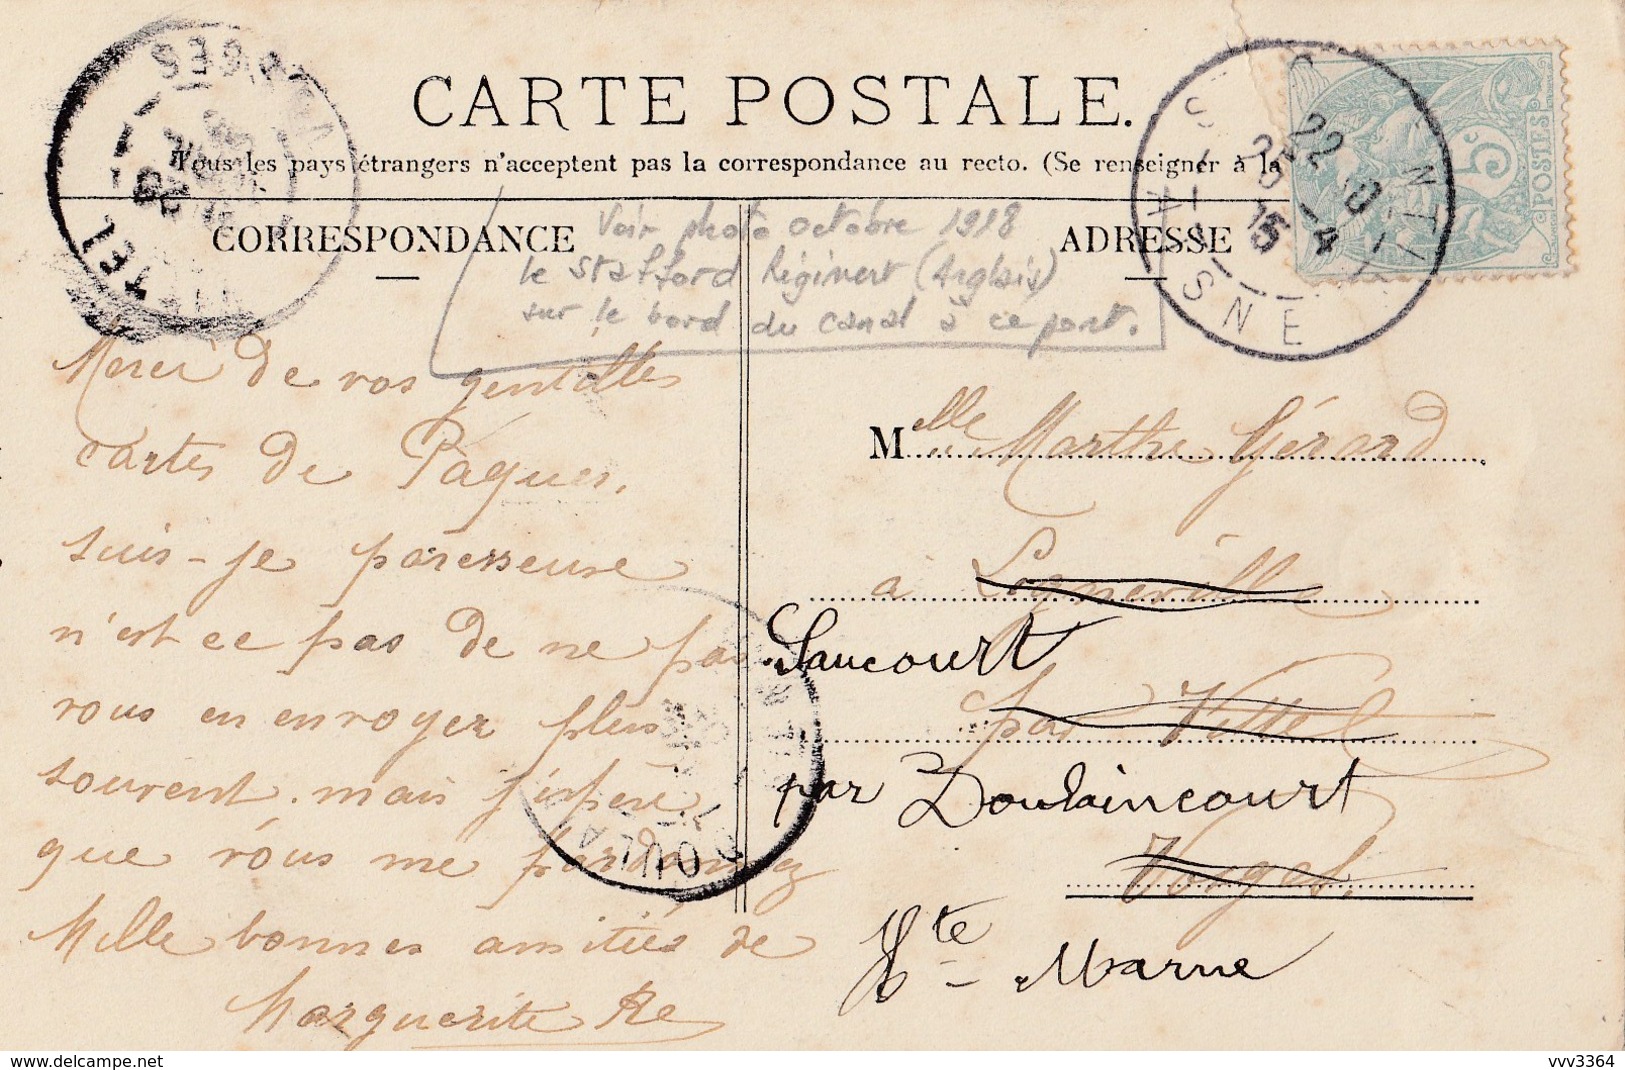 CARTE POSTALE.
Tous les pays étrangers n'acceptent pas la correspondance au recto. (Se renseigner à la
CORRESPONDANCE
ADRESSE
Voir photo octobre 1918
le Stafford Régiment (Anglais)
sur le bord du canal à ce pont.
Merci de vos gentilles
cartes de Pâques,
suis-je paresseuse
n'est ce pas de ne pas
vous en envoyer plus
souvent. mais j'espère
que vous me pardonnez
Mille bonnes amitiés de
Marguerite Re
Melle Marthe Gérard
à Ligneville
Saucourt
par Vittel
par Doulaincourt
Vosges
Hte - Marne
5c
POSTES
22
25 -4
15
AISNE
VOSGES
TEL
DOULA
vvv3364
www.delcampe.net